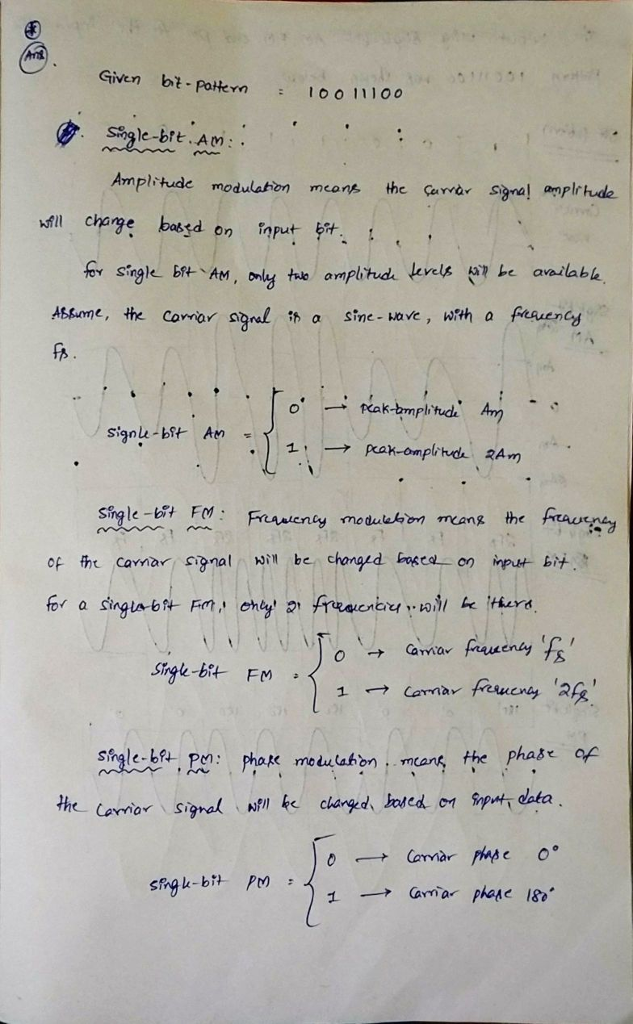 Ans
Given bit-pattern : 10011100
Single-bit AM:
Amplitude modulation means the carriar signal amplitude
will change based on input bit.
for single bit AM, only two amplitude levels will be available.
Assume, the carriar signal is a sine-wave, with a frequency
fs.
0 → peak-amplitude Am
Signle-bit AM =
1 → peak-amplitude 2Am
Single-bit FM: Frequency modulation means the frequency
of the carriar signal will be changed based on input bit.
for a single-bit FM, only 2 frequencies will be there.
0 → carriar frequency 'fs'
Single-bit FM =
1 → carriar frequency '2fs'
Single-bit PM: phase modulation means the phase of
the carriar signal will be changed, based on input data.
0 → carriar phase 0°
single-bit PM =
1 → carriar phase 180°